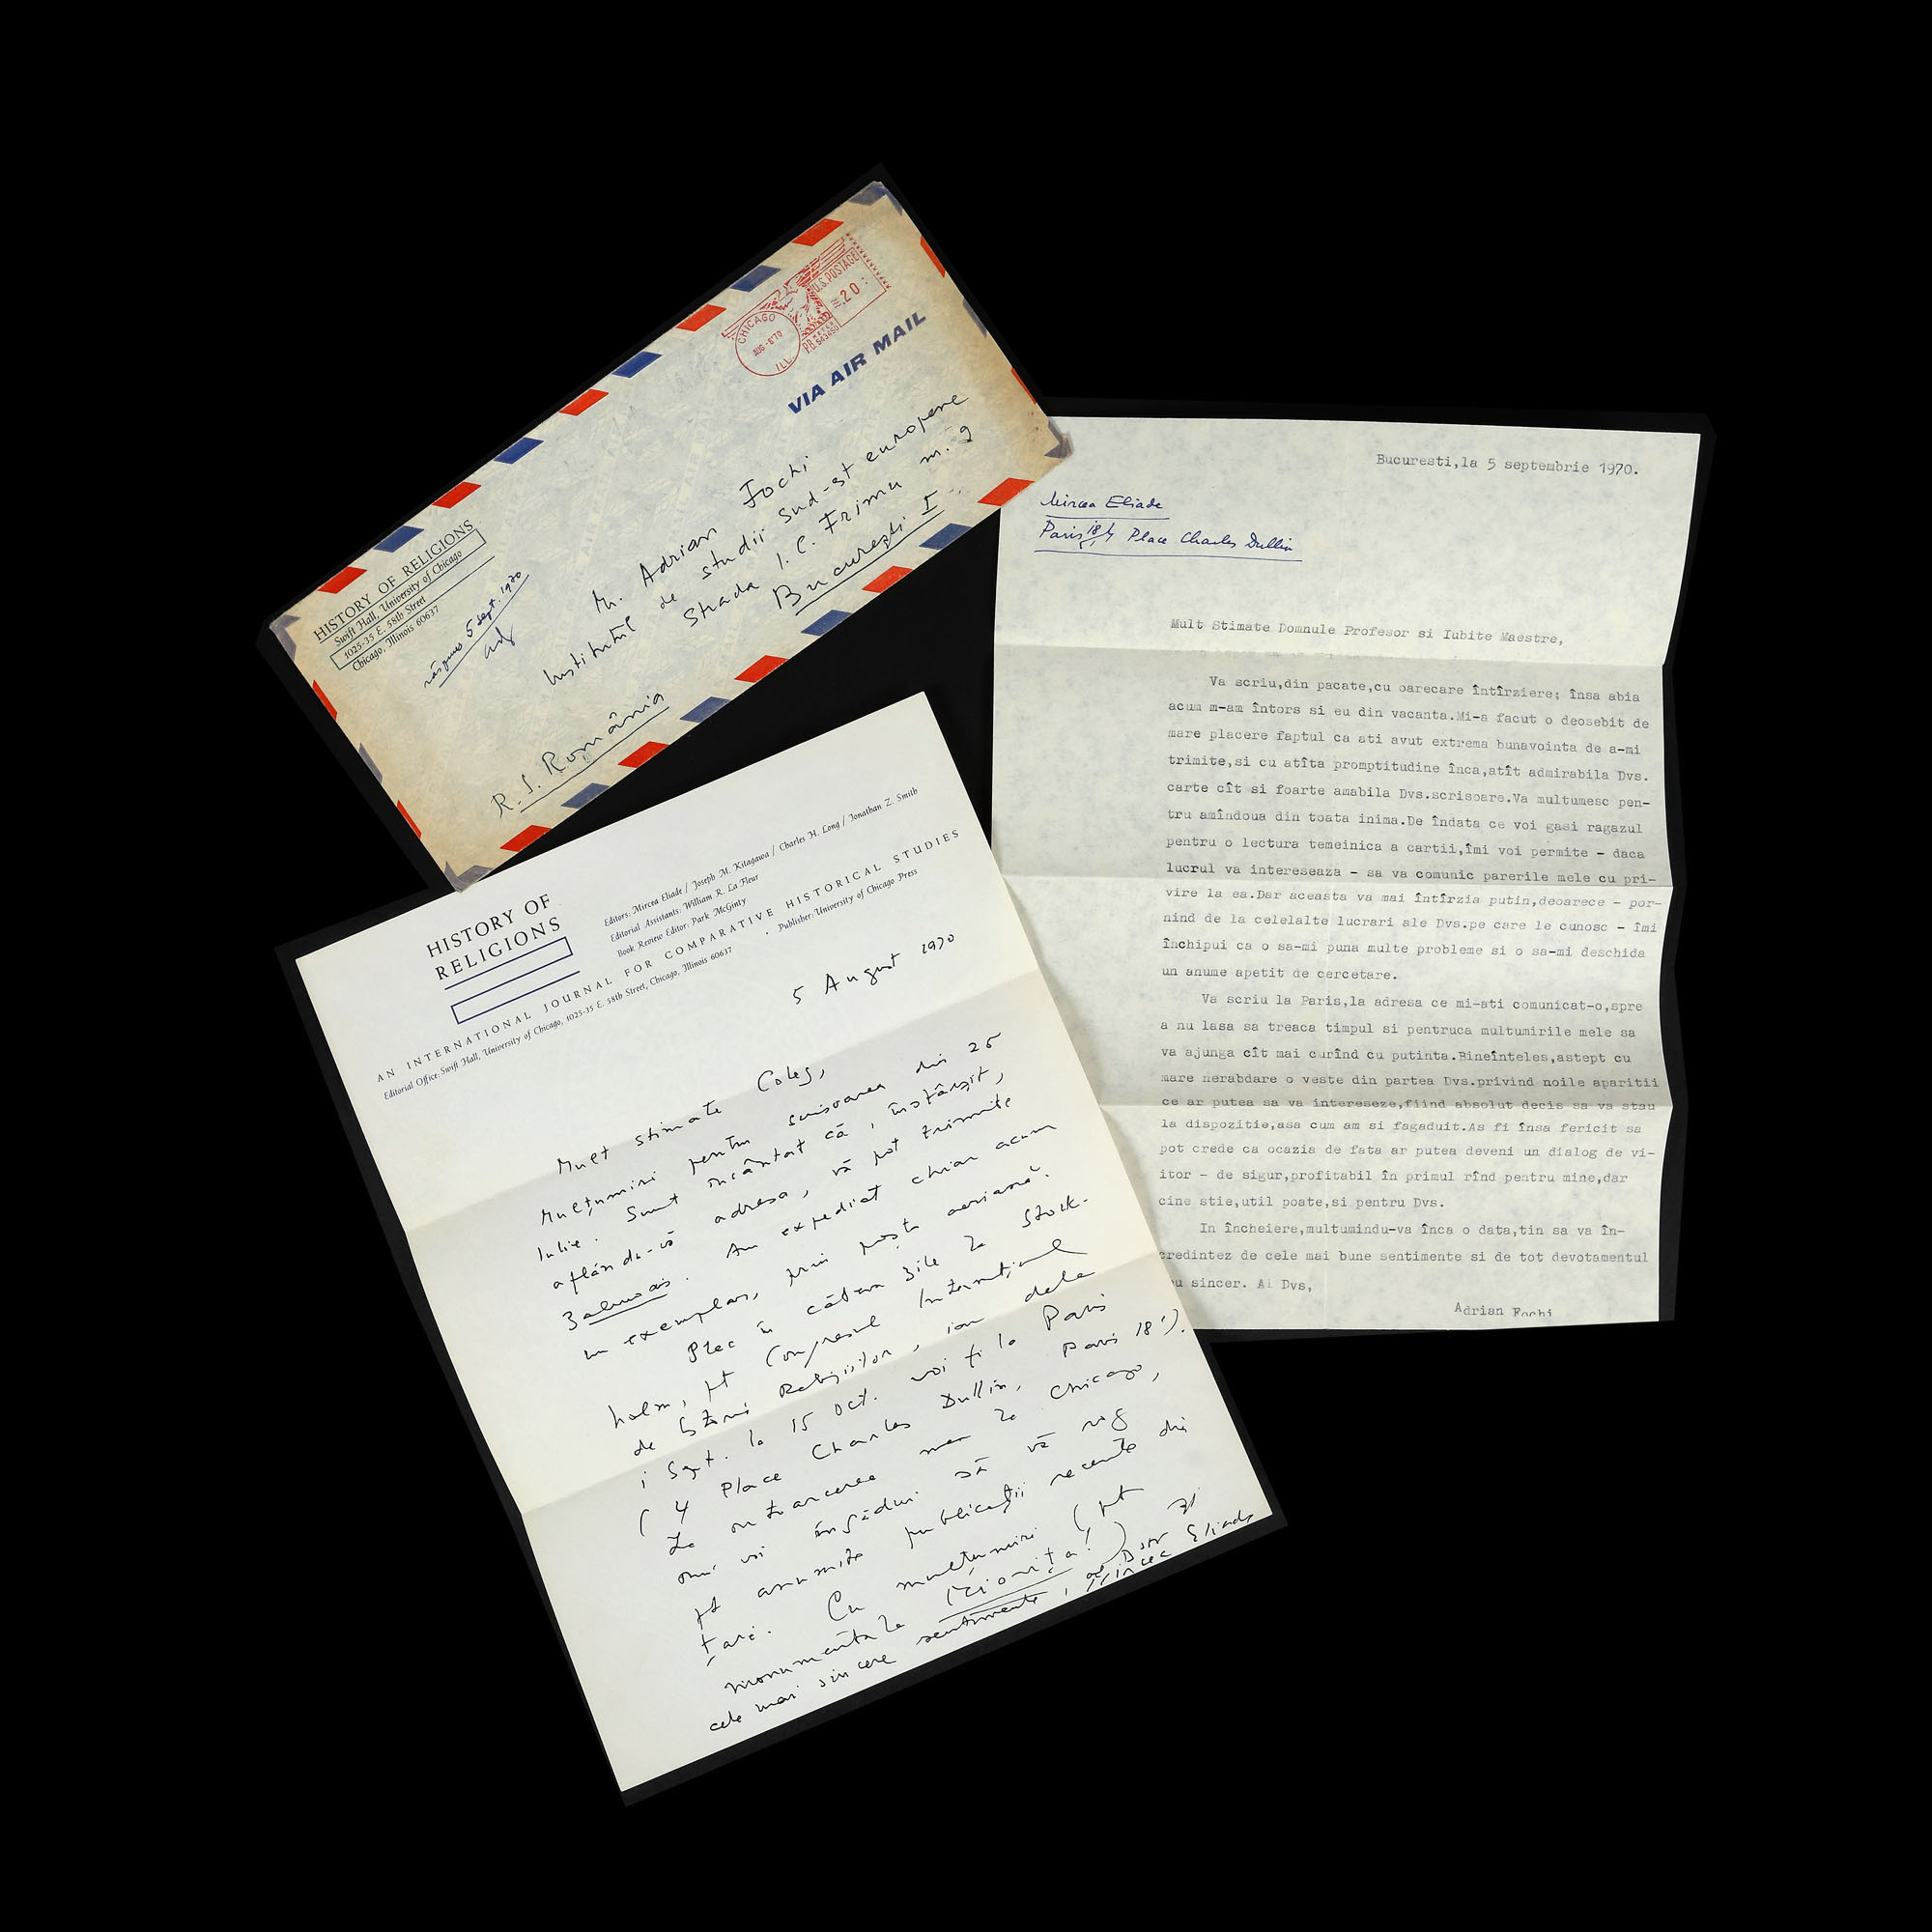 HISTORY OF RELIGIONS
Swift Hall, University of Chicago
1025-35 E. 58th Street
Chicago, Illinois 60637
răspuns 5 sept. 1970
CHICAGO
AUG -6'70
ILL.
U.S. POSTAGE
20
P.B. METER
VIA AIR MAIL
Adrian Fochi
Institutul de studii sud-est europene
Strada I. C. Frimu nr. 9
București I
R. S. România
HISTORY OF
RELIGIONS
Editors: Mircea Eliade / Joseph M. Kitagawa / Charles H. Long / Jonathan Z. Smith
Editorial Assistants: William R. La Fleur
Book Review Editor: Park McGinty
AN INTERNATIONAL JOURNAL FOR COMPARATIVE HISTORICAL STUDIES
Editorial Office: Swift Hall, University of Chicago, 1025-35 E. 58th Street, Chicago, Illinois 60637 · Publisher: University of Chicago Press
5 August 1970
Mult stimate Coleg,
Mulțumiri pentru scrisoarea din 25
Iulie. Sunt încântat că, însfârșit,
aflându-vă adresa, vă pot trimite
Zalmoxis. Am expediat chiar acum
un exemplar, prin poșta aeriană.
Plec în câteva zile la Stock-
holm, pt Congresul Internațional
de Istoria Religiilor, iar dela
1 Sept. la 15 Oct. voi fi la Paris
(4 Place Charles Dullin, Paris 18e).
La întoarcerea mea la Chicago,
îmi voi îngădui să vă rog
pt anumite publicații recente din
țară. Cu mulțumiri (pt
monumentala Miorița!) și
cele mai sincere sentimente, al Dstr
Mircea Eliade
Bucuresti,la 5 septembrie 1970.
Mircea Eliade
Paris 18 4 Place Charles Dullin
Mult Stimate Domnule Profesor si Iubite Maestre,
Va scriu,din pacate,cu oarecare întîrziere; însa abia
acum m-am întors si eu din vacanta.Mi-a facut o deosebit de
mare placere faptul ca ati avut extrema bunavointa de a-mi
trimite,si cu atîta promptitudine înca,atît admirabila Dvs.
carte cît si foarte amabila Dvs.scrisoare.Va multumesc pen-
tru amîndoua din toata inima.De îndata ce voi gasi ragazul
pentru o lectura temeinica a cartii,îmi voi permite - daca
lucrul va intereseaza - sa va comunic parerile mele cu pri-
vire la ea.Dar aceasta va mai întîrzia putin,deoarece - por-
nind de la celelalte lucrari ale Dvs.pe care le cunosc - îmi
închipui ca o sa-mi puna multe probleme si o sa-mi deschida
un anume apetit de cercetare.
Va scriu la Paris,la adresa ce mi-ati comunicat-o,spre
a nu lasa sa treaca timpul si pentruca multumirile mele sa
va ajunga cît mai curînd cu putinta.Bineînteles,astept cu
mare nerabdare o veste din partea Dvs.privind noile aparitii
ce ar putea sa va intereseze,fiind absolut decis sa va stau
la dispozitie,asa cum am si fagaduit.As fi însa fericit sa
pot crede ca ocazia de fata ar putea deveni un dialog de vi-
itor - de sigur,profitabil în primul rînd pentru mine,dar
cine stie,util poate,si pentru Dvs.
In încheiere,multumindu-va înca o data,tin sa va în-
credintez de cele mai bune sentimente si de tot devotamentul
u sincer. Al Dvs,
Adrian Fochi